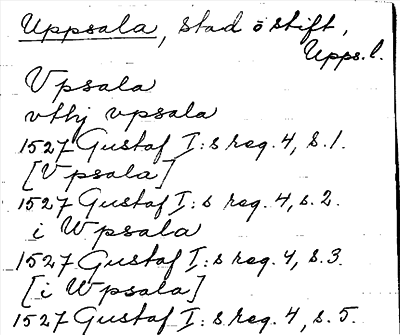 Uppsala, stad o stift,
Upps. l.
Vpsala
vthj vpsala
1527 Gustaf I:s reg. 4, s. 1.
[Vpsala]
1527 Gustaf I:s reg. 4, s. 2.
i Wpsala
1527 Gustaf I:s reg. 4, s. 3.
[i Wpsala]
1527 Gustaf I:s reg. 4, s. 5.